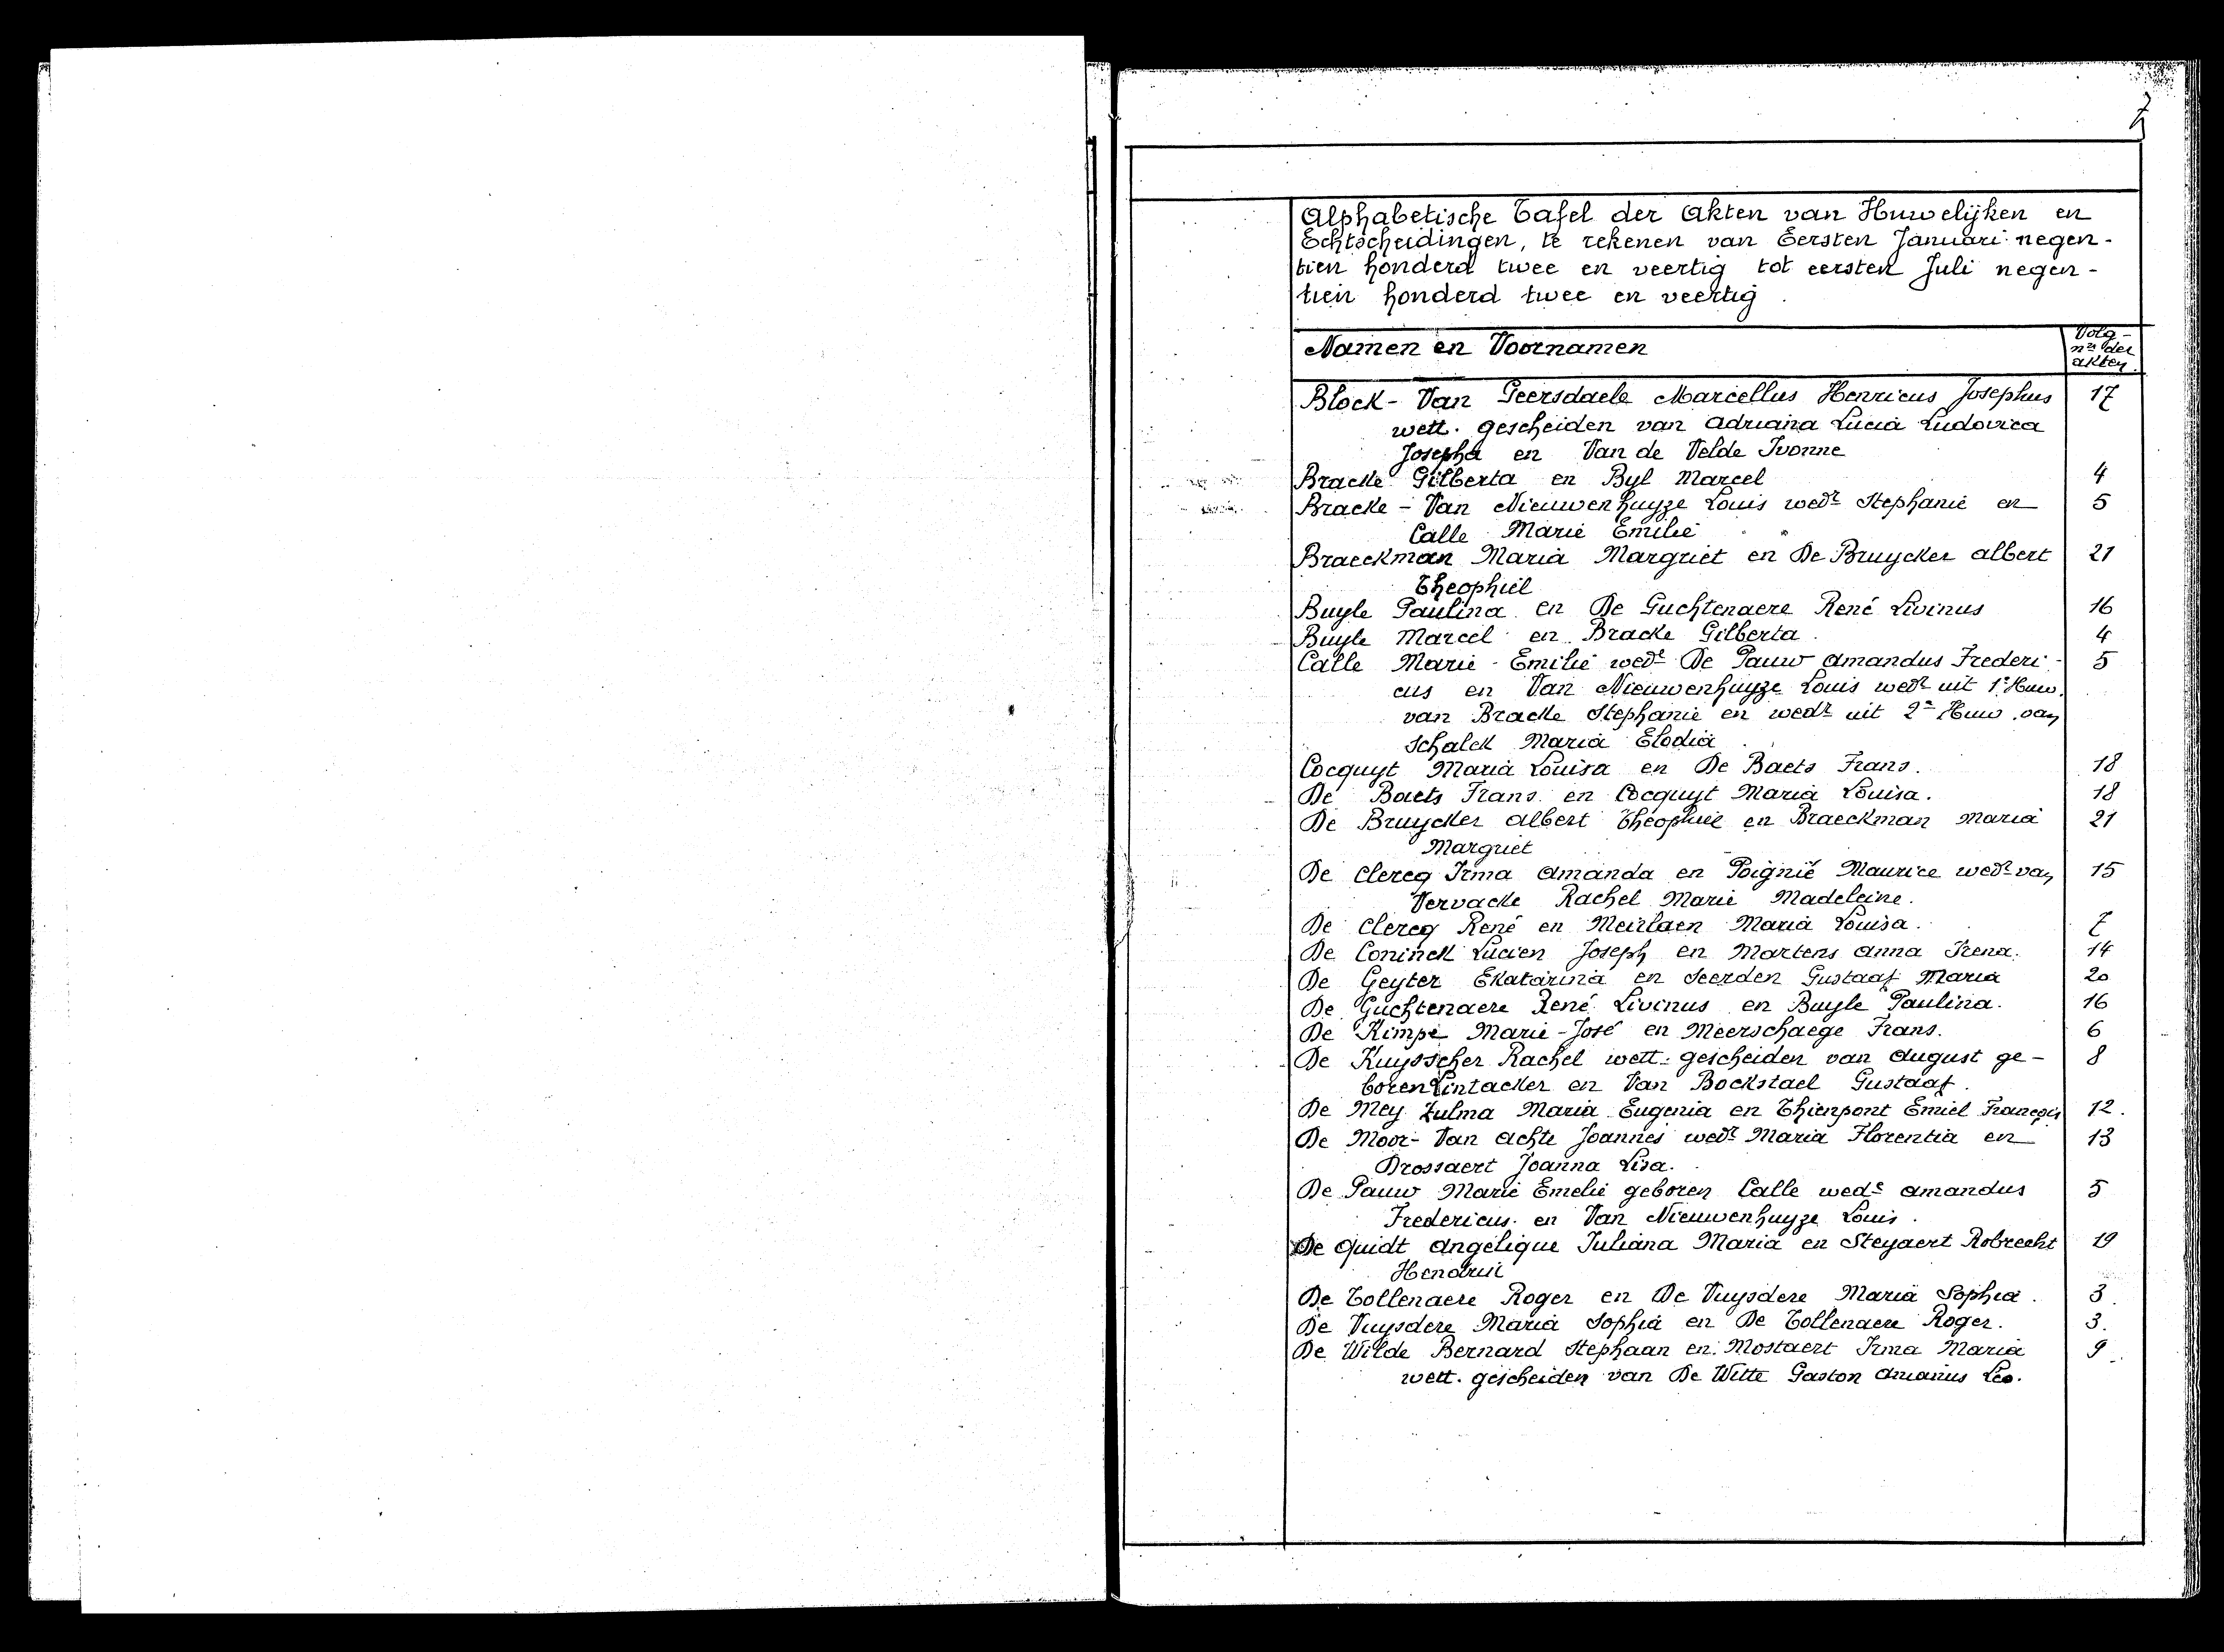 7
Alphabetische Tafel der Akten van Huwelijken en
Echtscheidingen, te rekenen van Eersten Januari negen-
tien honderd twee en veertig tot eersten Juli negen-
tien honderd twee en veertig.
Namen en Voornamen
Volg-
nrs der
akten.
Block - Van Geersdaele Marcellus Henricus Josephus 17
wett. gescheiden van Adriana Lucia Ludovica
Josepha en Van de Velde Ivonne
Bracke Gilberta en Byl Marcel 4
Bracke - Van Nieuwenhuyze Louis wedr Stephanie en 5
Calle Marie Emilie
Braeckman Maria Margriet en De Bruycker Albert 21
Theophiel
Buyle Paulina en De Guchtenaere René Livinus 16
Buyle Marcel en Bracke Gilberta. 4
Calle Marie-Emilie wede De Pauw Amandus Frederi- 5
cus en Van Nieuwenhuyze Louis wedr uit 1e Huw.
van Bracke Stephanie en wedr uit 2e Huw. van
Schalck Maria Elodia.
Cocquyt Maria Louisa en De Baets Frans. 18
De Baets Frans en Cocquyt Maria Louisa. 18
De Bruycker Albert Theophiel en Braeckman Maria 21
Margriet
De Clercq Irma Amanda en Poignié Maurice wedr van 15
Vervacke Rachel Marie Madeleine.
De Clercq René en Meirlaen Maria Louisa. 7
De Coninck Lucien Joseph en Martens Anna Irena. 14
De Geyter Ekatarina en Seerden Gustaaf Maria 20
De Guchtenaere René Livinus en Buyle Paulina. 16
De Kimpe Marie-José en Meerschaege Frans. 6
De Kuysscher Rachel wett. gescheiden van August ge- 8
boren Lintacker en Van Bockstael Gustaaf.
De Mey Zulma Maria Eugenia en Thienpont Emiel François 12.
De Moor - Van Achte Joannes wedr Maria Florentia en 13
Drossaert Joanna Lisa.
De Pauw Marie Emelie geboren Calle wede Amandus 5
Fredericus en Van Nieuwenhuyze Louis.
De Quidt Angelique Juliana Maria en Steyaert Robrecht 19
Hendrik
De Tollenaere Roger en De Vuysdere Maria Sophia. 3.
De Vuysdere Maria Sophia en De Tollenaere Roger. 3.
De Wilde Bernard Stephaan en Mostaert Irma Maria 9.
wett. gescheiden van De Witte Gaston Leo.